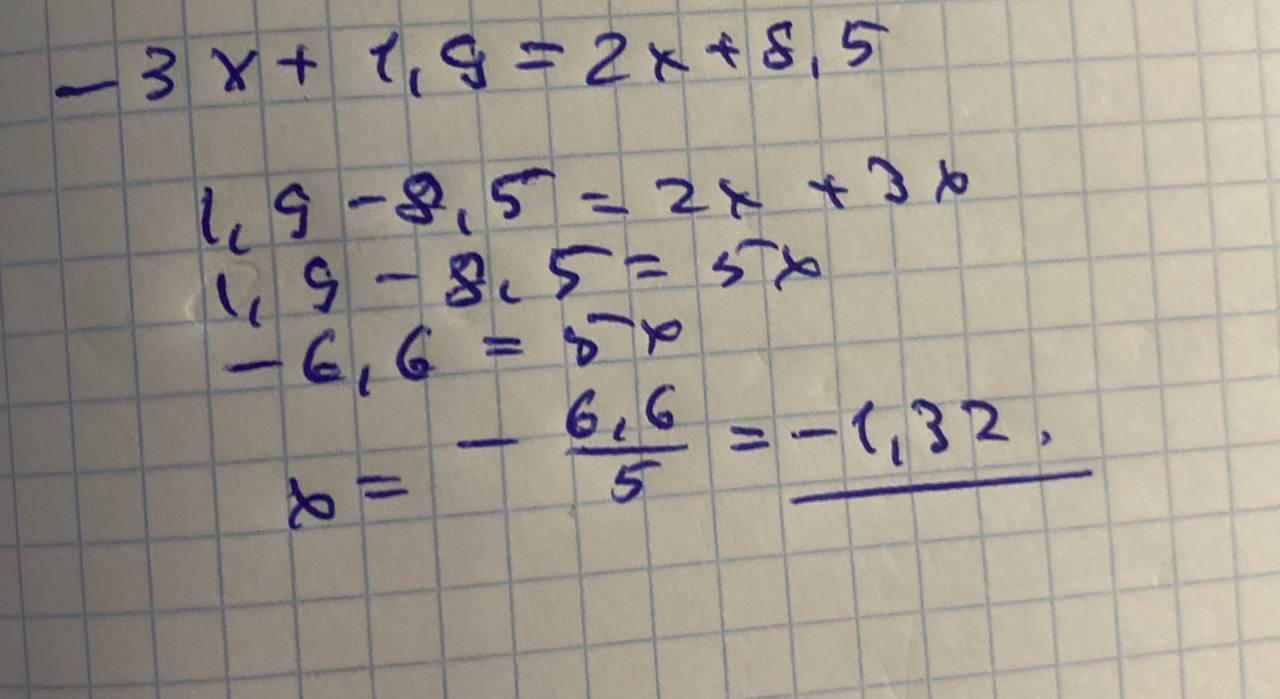 -3x + 1,9 = 2x + 8,5
1,9 - 8,5 = 2x + 3x
1,9 - 8,5 = 5x
-6,6 = 5x
x = - 6,6/5 = -1,32.